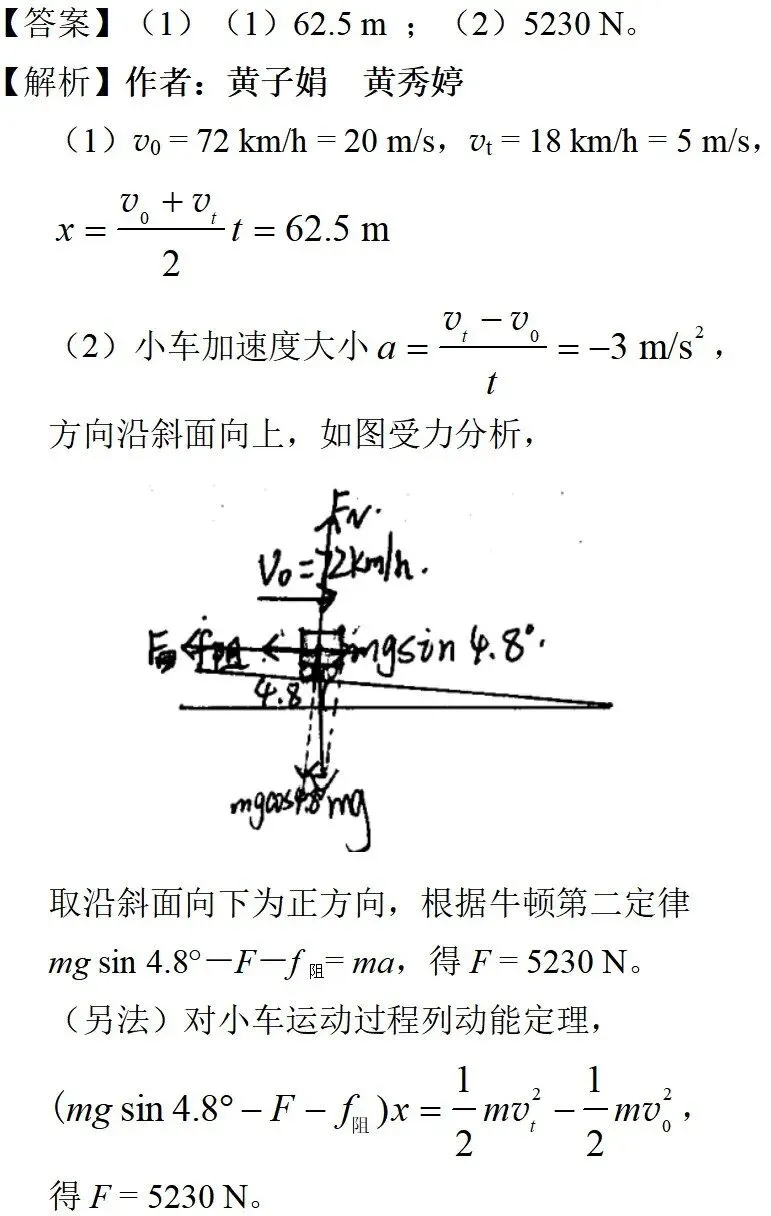 【答案】（1）（1）62.5 m ；（2）5230 N。
【解析】作者：黄子娟 黄秀婷
（1）v₀ = 72 km/h = 20 m/s，vₜ = 18 km/h = 5 m/s，
x = (v₀ + vₜ)/2 t = 62.5 m
（2）小车加速度大小 a = (vₜ − v₀)/t = −3 m/s²，
方向沿斜面向上，如图受力分析，
F_N.
V₀=72km/h.
f阻 mgsin 4.8°.
4.8
mgcos4.8° mg
取沿斜面向下为正方向，根据牛顿第二定律
mg sin 4.8°－F－f阻= ma，得 F = 5230 N。
（另法）对小车运动过程列动能定理，
(mg sin 4.8° − F − f阻)x = 1/2 mvₜ² − 1/2 mv₀²，
得 F = 5230 N。